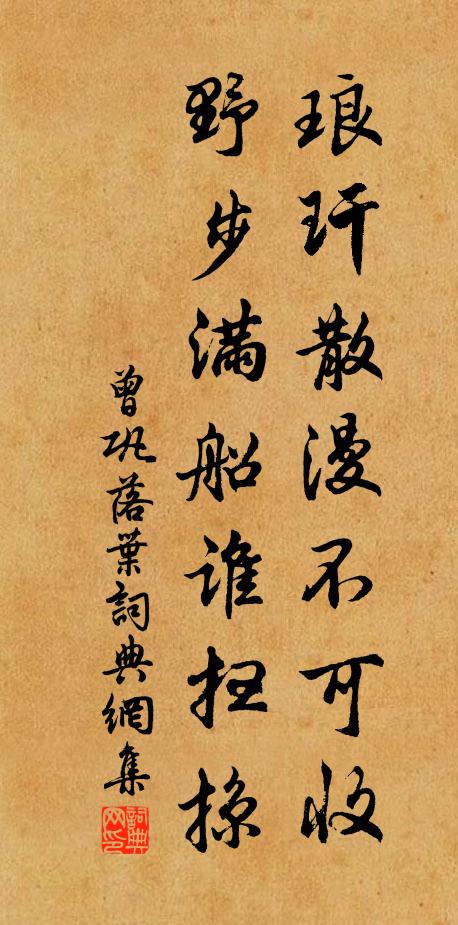 琅玕散漫不可收
野步满船谁扫掠
曾巩落葉詞典網集
詞典網印